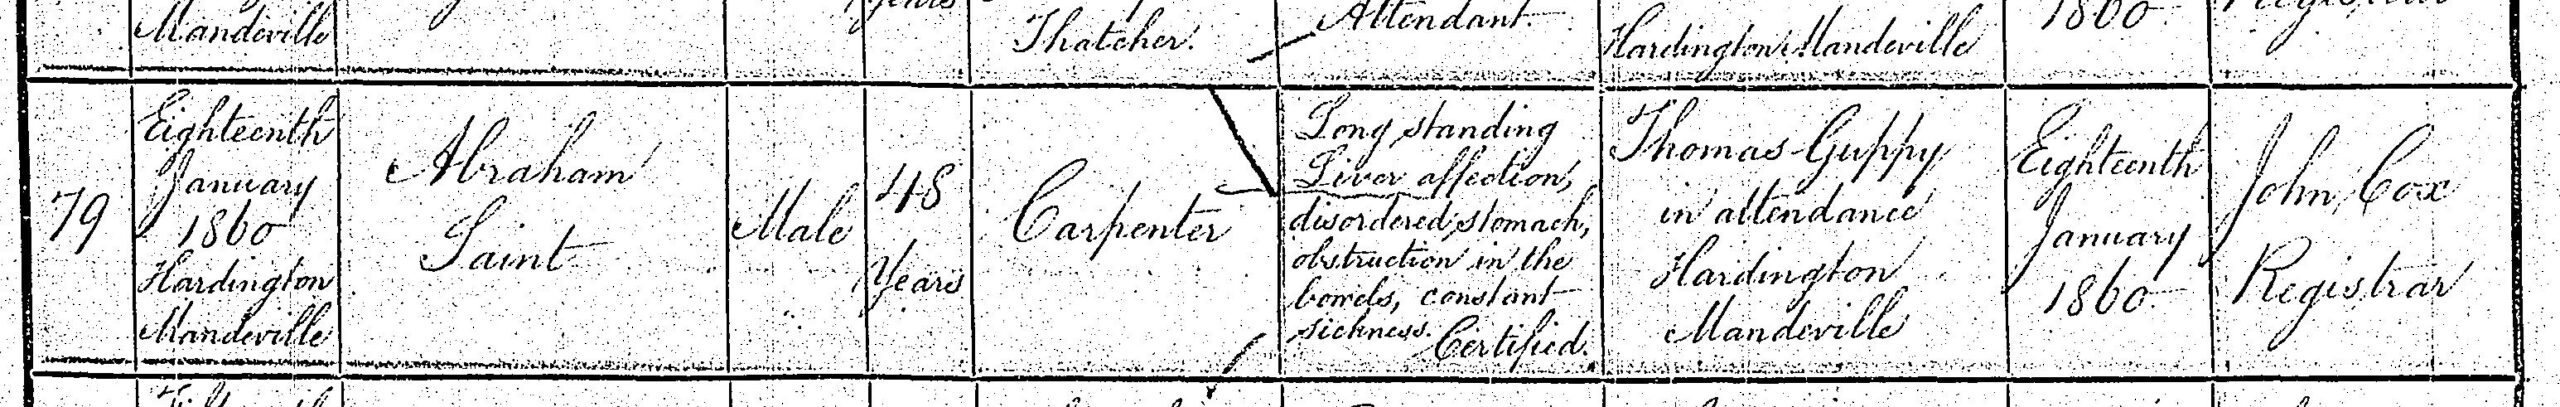 Mandeville
Years
Thatcher.
Attendant.
Hardington Mandeville
1860.
Registrar
79
Eighteenth
January
1860
Hardington
Mandeville
Abraham
Saint
Male
48
Years
Carpenter
Long standing
Liver affection,
disordered stomach,
obstruction in the
bowels, constant
sickness. Certified.
Thomas Guppy
in attendance
Hardington
Mandeville
Eighteenth
January
1860.
John Cox
Registrar